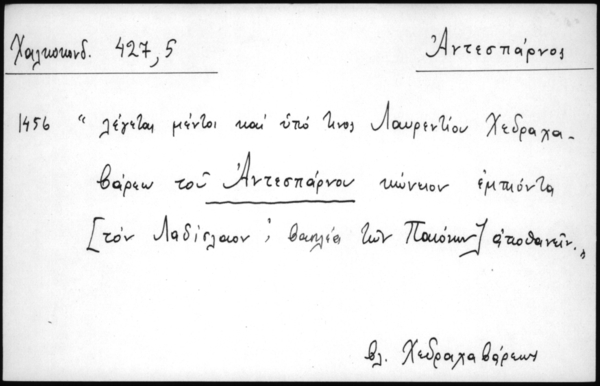 Χαλκοκονδ. 427,5
Ἀντεσπάρνος
1456 " λέγεται μέντοι καὶ ὑπό τινος Λαυρεντίου Χεδραχα-
βάρεω τοῦ Ἀντεσπάρνου κώνειον ἐμπιόντα
[τὸν Λαδίσλαον, βασιλέα τῶν Παιόνων] ἀποθανεῖν.„
βλ. Χεδραχαβάρεων